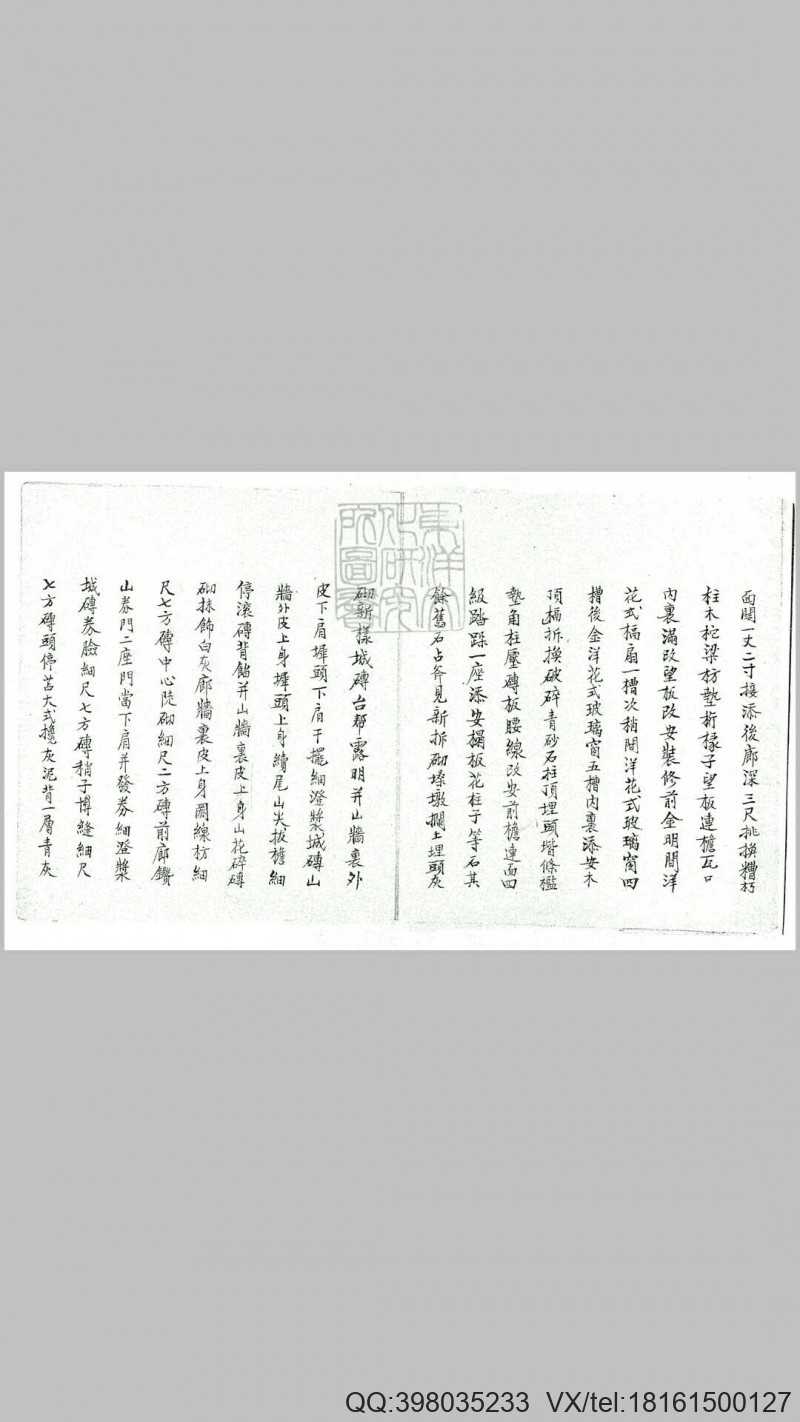 面闊一丈二寸接添後廊深三尺挑換糟朽
柱木柁梁枋墊桁椽子望板連檐瓦口
內裏滿改望板改安裝修前金明間洋
花式槅扇一槽次稍間洋花式玻璃窗四
槽後金洋花式玻璃窗五槽內裏添安木
頂槅拆換破碎青砂石柱頂埋頭堦條檻
墊角柱壓磚板腰線改安前檐連面四
級踏跺一座添安榻板花柱子等石其
餘舊石占斧見新拆砌磉墩攔土埋頭灰
砌新樣城磚台帮露明并山牆裏外
皮下肩墀頭下肩干擺細澄漿城磚山
牆外皮上身墀頭上身續尾山尖拔檐細
停滚磚背餡并山牆裏皮上身山花碎磚
砌抹飾白灰廊牆裏皮上身圈線枋細
尺七方磚中心陡砌細尺二方磚前廊鑽
山券門二座門當下肩并發券細澄漿
城磚券臉細尺七方磚稍子博縫細尺
七方磚頭停苫大式攙灰泥背一層青灰
東洋文
化研究
所圖書
QQ:398035233 VX/tel:18161500127